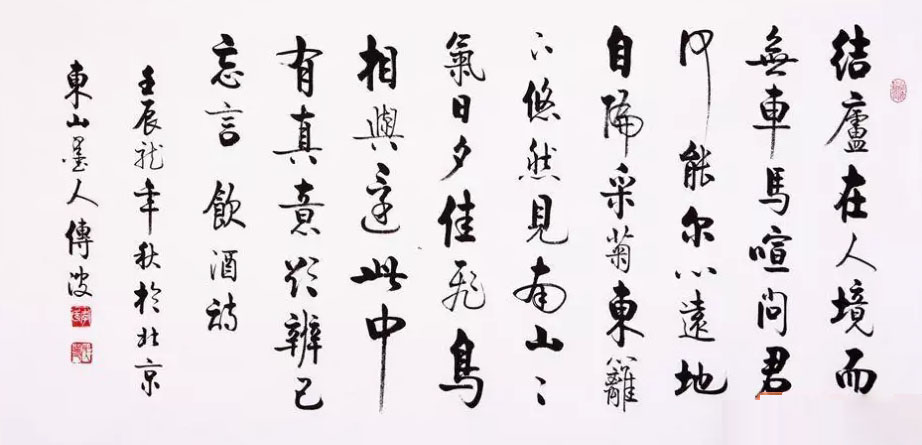 結廬在人境而
無車馬喧問君
何能尔心遠地
自偏采菊東籬
下悠然見南山〻
氣日夕佳飛鳥
相與還此中
有真意欲辨已
忘言 飲酒詩
壬辰龍年秋於北京
東山墨人傳波